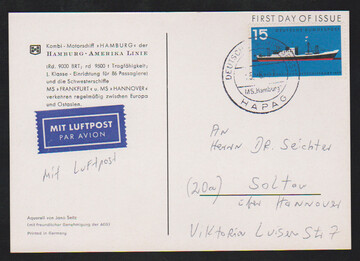 FIRST DAY OF ISSUE
Kombi - Motorschiff »HAMBURG« der
HAMBURG-AMERIKA LINIE
(rd. 9000 BRT, rd. 9500 t Tragfähigkeit)
1. Klasse - Einrichtung für 86 Passagiere
und die Schwesterschiffe
MS »FRANKFURT« u. MS »HANNOVER«
verkehren regelmäßig zwischen Europa
und Ostasien.
15
MS„Hamburg"
HAPAG
MIT LUFTPOST
PAR AVION
Mit Luftpost
AN
Herrn Dr. Seichter
(20a) Soltau
über Hannover
Viktoria Luisen Str 7
Aquarell von Jano Seitz
Printed in Germany